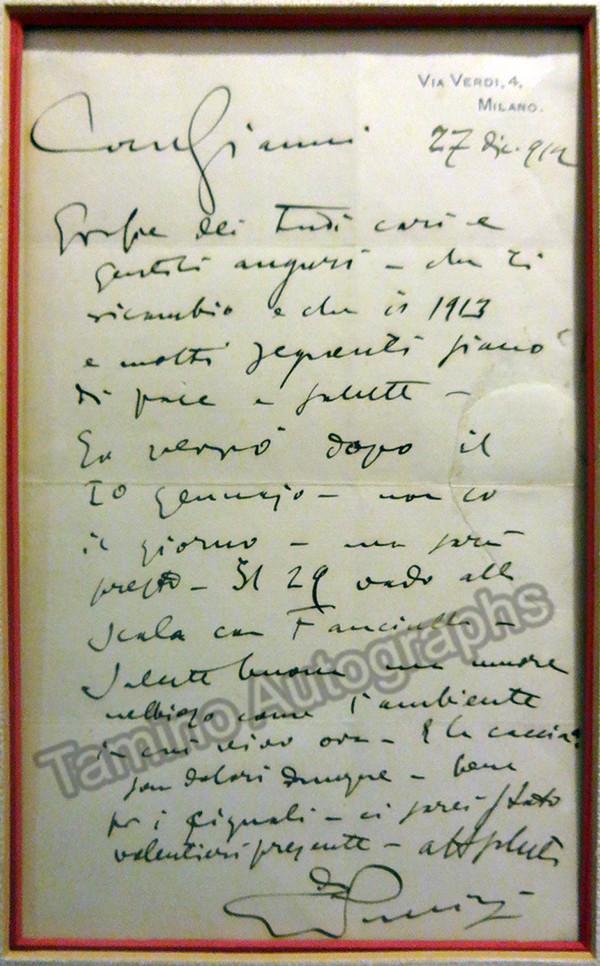 VIA VERDI, 4.
MILANO.
27 dic. 912
Caro Gianni
Grazie dei tuoi cari e
gentili auguri – che ti
ricambio e che il 1913
e molti seguenti siano
di pace e salute –
Io verrò dopo il
10 gennajo – non so
il giorno – ma sarà
presto – Il 29 vado alla
Scala con Fanciulla –
Salute buona ma umore
nebbioso come l'ambiente
in cui vivo ora – E la caccia?
son dolori dunque – bene
per i cignali – ci sarei stato
volentieri presente –
Puccini
Tamino Autographs